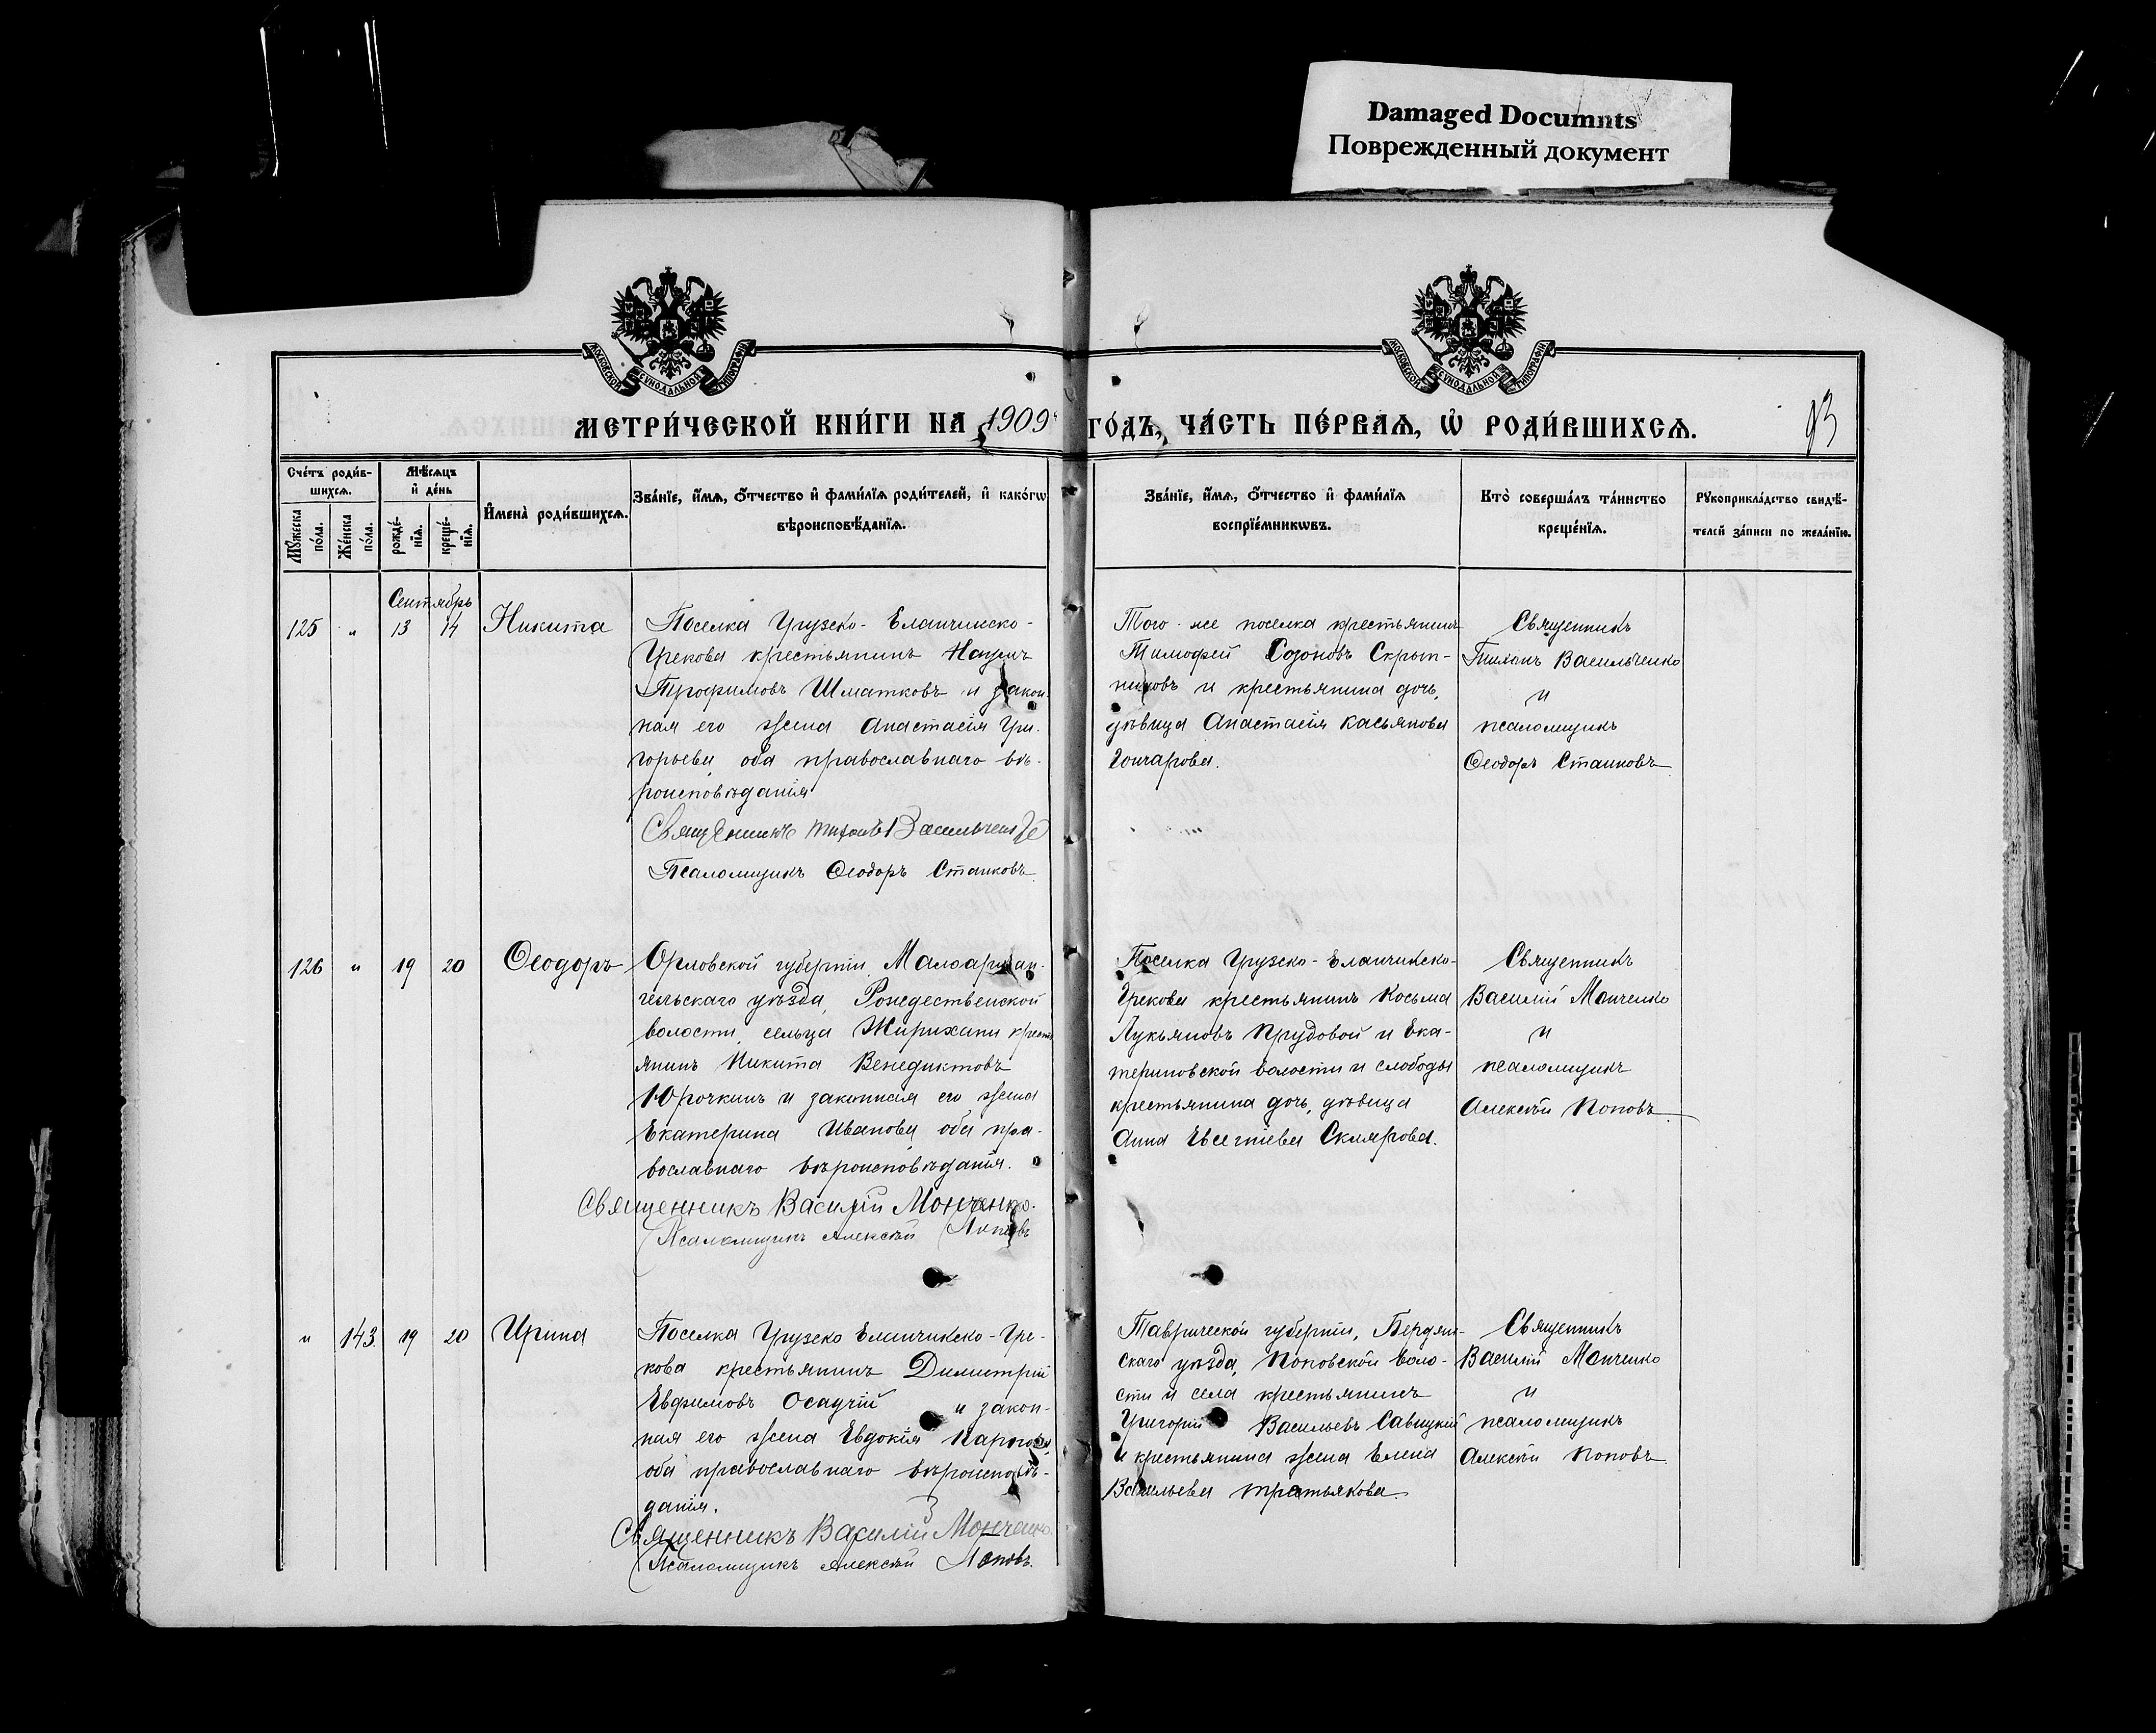 Damaged Documnts
Поврежденный документ
МОСКОВСКОЙ СѴНОДАЛЬНОЙ ТИПОГРАФІИ
МОСКОВСКОЙ СѴНОДАЛЬНОЙ ТИПОГРАФІИ
МЕТРИ́ЧЕСКОЙ КНИ́ГИ НА 1909 ГО́ДЪ, ЧА́СТЬ ПЕ́РВАѦ, Ѡ҆ РОДИ́ВШИХСѦ.
93
Сче́тъ роди́в-
шихсѧ.
Мꙋ́жеска по́ла.
Же́нска по́ла.
Мѣ́сѧцъ
и҆ де́нь
рожде́-
нїѧ.
креще́-
нїѧ.
И҆мена̀ роди́вшихсѧ.
Зва́нїе, и҆́мѧ, ѻ҆́тчество и҆ фами́лїѧ роди́телей, и҆ како́гѡ
вѣроисповѣ́данїѧ.
Зва́нїе, и҆́мѧ, ѻ҆́тчество и҆ фами́лїѧ
воспрїе́мникѡвъ.
Кто̀ соверша́лъ та́инство
креще́нїѧ.
Рꙋкоприкла́дство свидѣ́-
телей за́писи по жела́нїю.
Сентябрь
125 " 13 14 Никита
Поселка Грузско-Еланчикско-
Грекова крестьянинъ Наумъ
Трофимовъ Шматковъ и закон-
ная его жена Анастасія Гри-
горьева, оба православнаго вѣ-
роисповѣданія
Священникъ Тихонъ Васильченко
Псаломщикъ Ѳеодоръ Станковъ.
Того-же поселка крестьянинъ
Тимофей Созоновъ Скрып-
никовъ и крестьянина дочь,
дѣвица Анастасія Касьянова
Гончарова.
Священникъ
Тихонъ Васильченко
и
псаломщикъ
Ѳеодоръ Станковъ
126 " 19 20 Ѳеодоръ
Орловской губерніи, Малоархан-
гельскаго уѣзда, Рождественской
волости, сельца Жирихани крест
янинъ Никита Венедиктовъ
Юрочкинъ и законная его жена
Екатерина Иванова, оба пра-
вославнаго вѣроисповѣданія.
Священникъ Василій Монченко.
Псаломщикъ Алексѣй Поповъ
Поселка Грузско-Еланчикско-
Грекова крестьянинъ Косьма
Лукьяновъ Прудовой и Ека-
териновской волости и слободы
крестьянина дочь, дѣвица
Анна Евсегніева Склярова.
Священникъ
Василій Монченко
и
псаломщикъ
Алексѣй Поповъ
" 143. 19 20 Ирина
Поселка Грузско Еланчикско-Гре-
кова крестьянинъ Димитрій
Евфимовъ Осаучій и закон-
ная его жена Евдокія
оба православнаго вѣроисповѣ-
данія.
Священникъ Василій Монченко.
Псаломщикъ Алексѣй Поповъ.
Таврической губерніи, Бердян-
скаго уѣзда, Поповской воло-
сти и села крестьянинъ
Григорій Васильевъ Савицкій
и крестьянина жена Елена
Васильева Третьякова.
Священникъ
Василій Монченко
и
псаломщикъ
Алексѣй Поповъ.